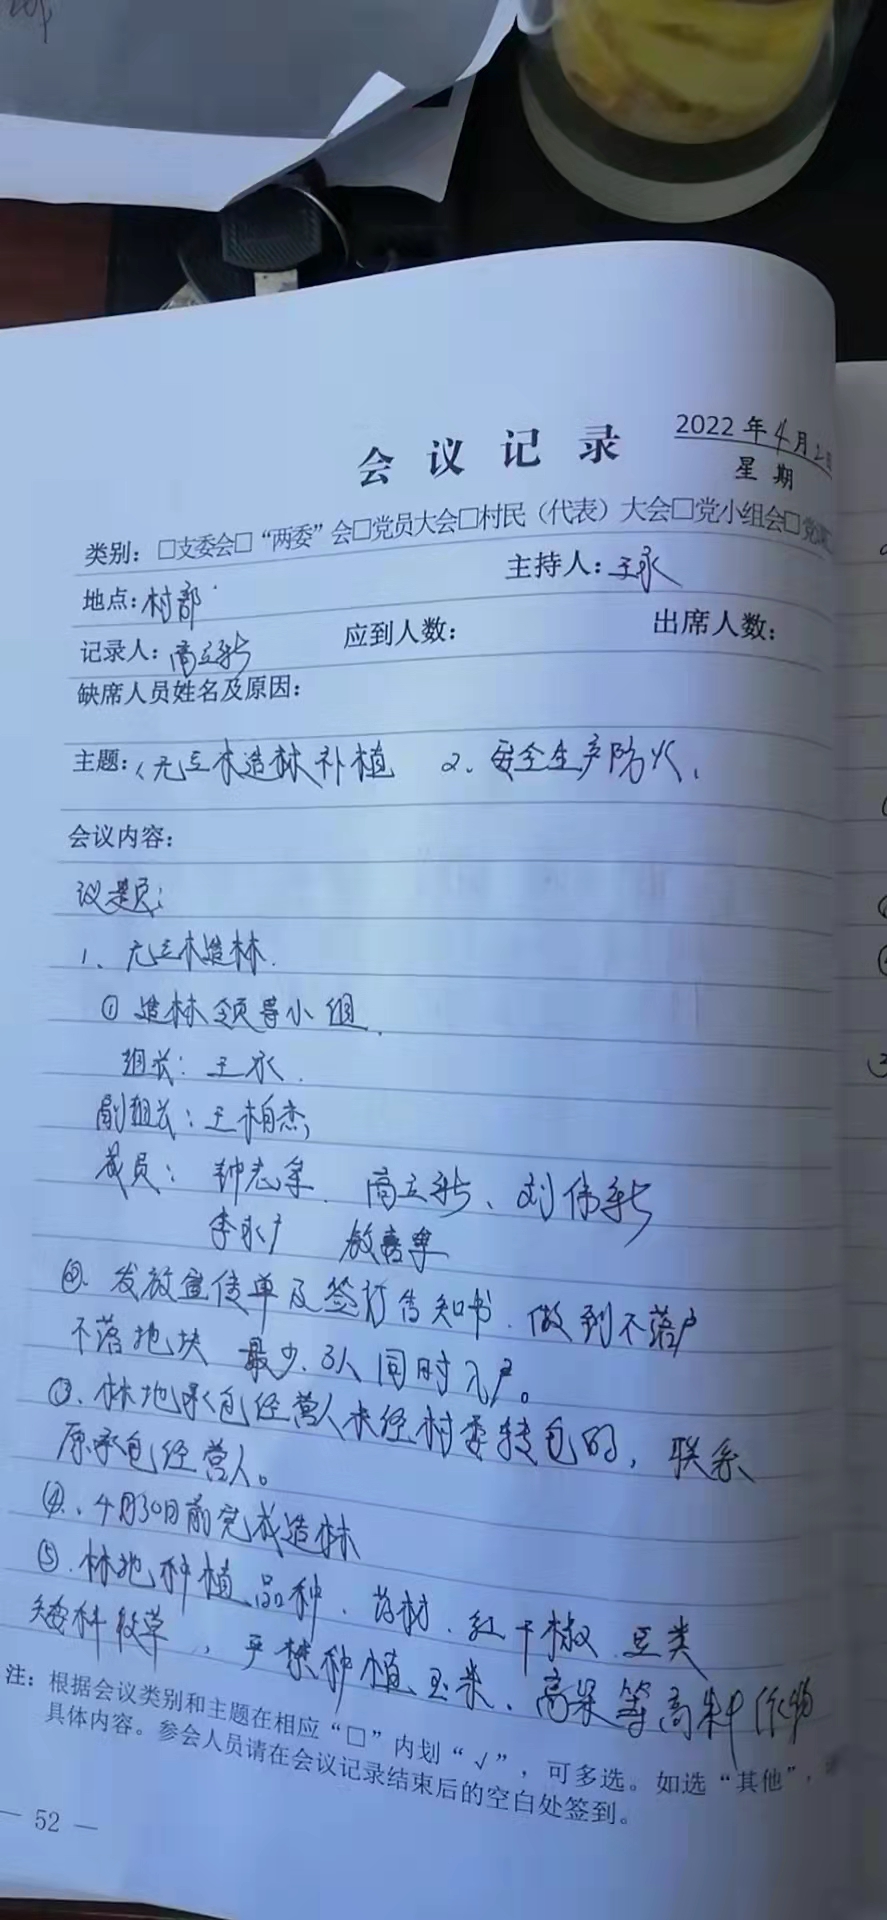 会议记录
2022年4月
星期
类别：□支委会□“两委”会□党员大会□村民（代表）大会□党小组会□党课
地点：村部 主持人：王永
记录人：高立新 应到人数： 出席人数：
缺席人员姓名及原因：
主题：1、无立木造林补植 2、安全生产防火、
会议内容：
议题：
1、无立木造林.
① 造林领导小组.
组长：王永.
副组长：王柏杰,
成员： 钟志 高立新、刘伟新
李永广
②. 发放宣传单及签订告知书.做到不落户
不落地块 最少.3人同时入户。
③.林地承包经营人未经村委转包的，联系
原承包经营人。
④、4月30日前完成造林
⑤.林地种植品种.药材.红干椒.豆类
矮科牧草，严禁种植玉米、高粱等高科作物
注：根据会议类别和主题在相应“□”内划“√”，可多选。如选“其他”，
具体内容。参会人员请在会议记录结束后的空白处签到。
— 52 —